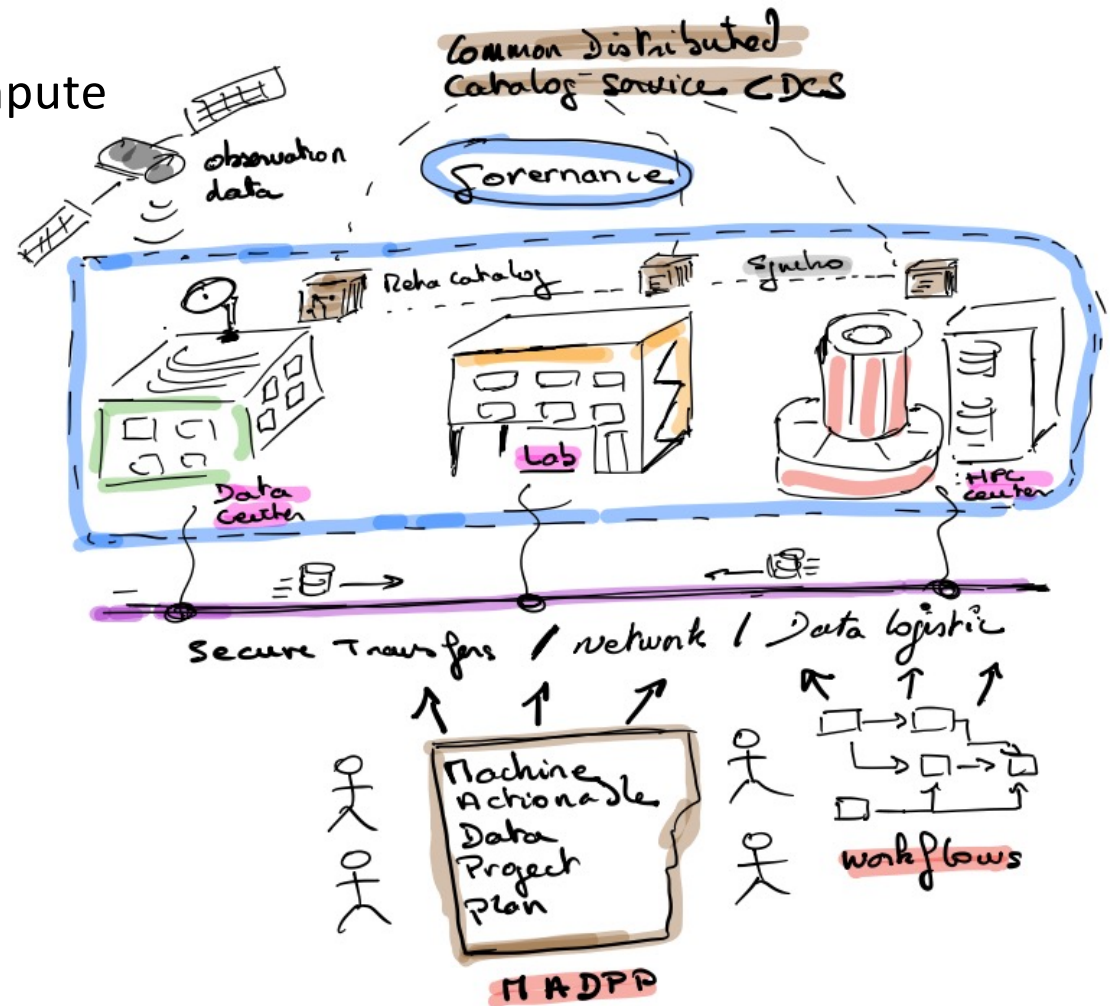 mpute
Common Distributed
Catalog Service CDCS
observation
data
Governance
Meta catalog
Synchro
Data
Center
Lab
HPC
center
Secure Transfers / Network / Data logistic
Machine
Actionable
Data
Project
Plan
workflows
MADPP